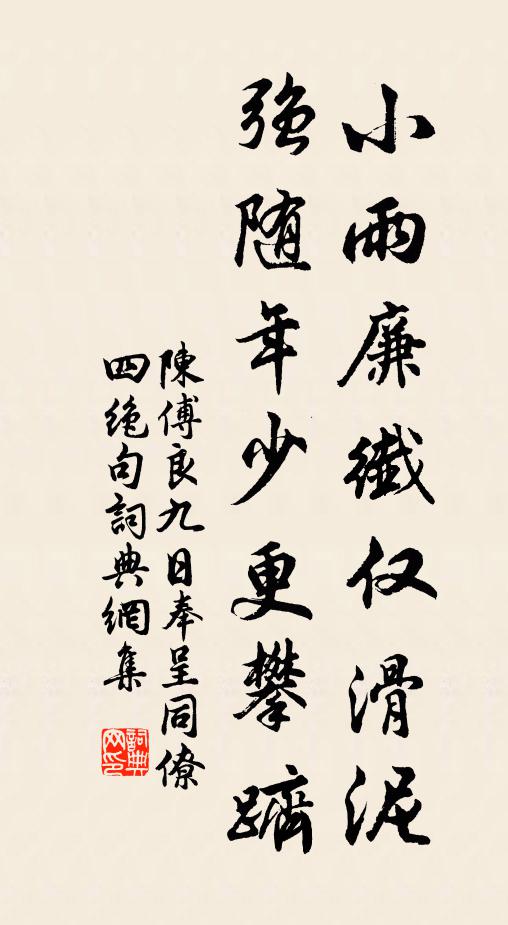 小雨廉纖仅滑泥
强随年少更攀躋
陳傅良九日奉呈同僚
四絶句詞典網集
詞典网印